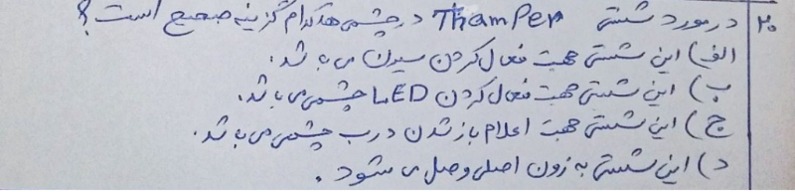 ۲۰ در مورد شستی Thamper در چشمی ها کدام گزینه صحیح است؟
الف) این شستی جهت فعال کردن سیرن می باشد.
ب) این شستی جهت فعال کردن LED چشمی می باشد.
ج) این شستی جهت اعلام باز شدن درب چشمی می باشد.
د) این شستی به زون اصلی وصل می شود.